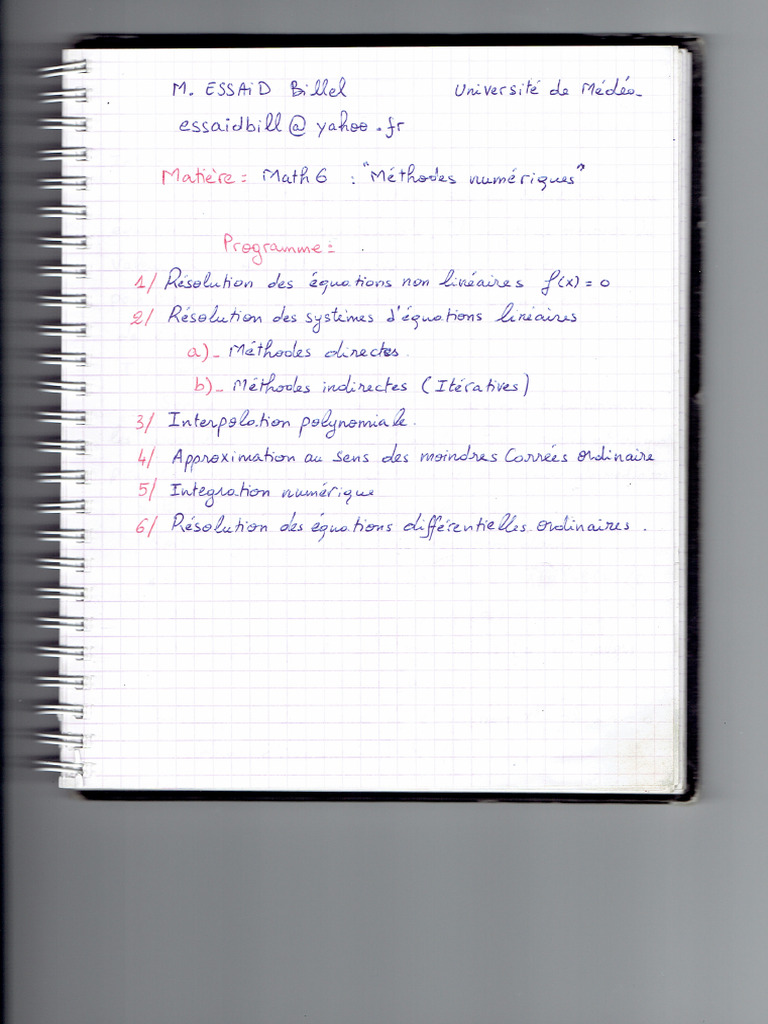 M. ESSAiD Billel Université de Médéa
essaidbill@yahoo.fr
Matière: Math 6 : "Méthodes numériques"
Programme:
1/ Résolution des équations non linéaires f(x) = 0
2/ Résolution des systèmes d'équations linéaires
a)- Méthodes directes.
b)- Méthodes indirectes (Itératives)
3/ Interpolation polynomiale.
4/ Approximation au sens des moindres Carrées ordinaire
5/ Integration numérique
6/ Résolution des équations différentielles ordinaires.